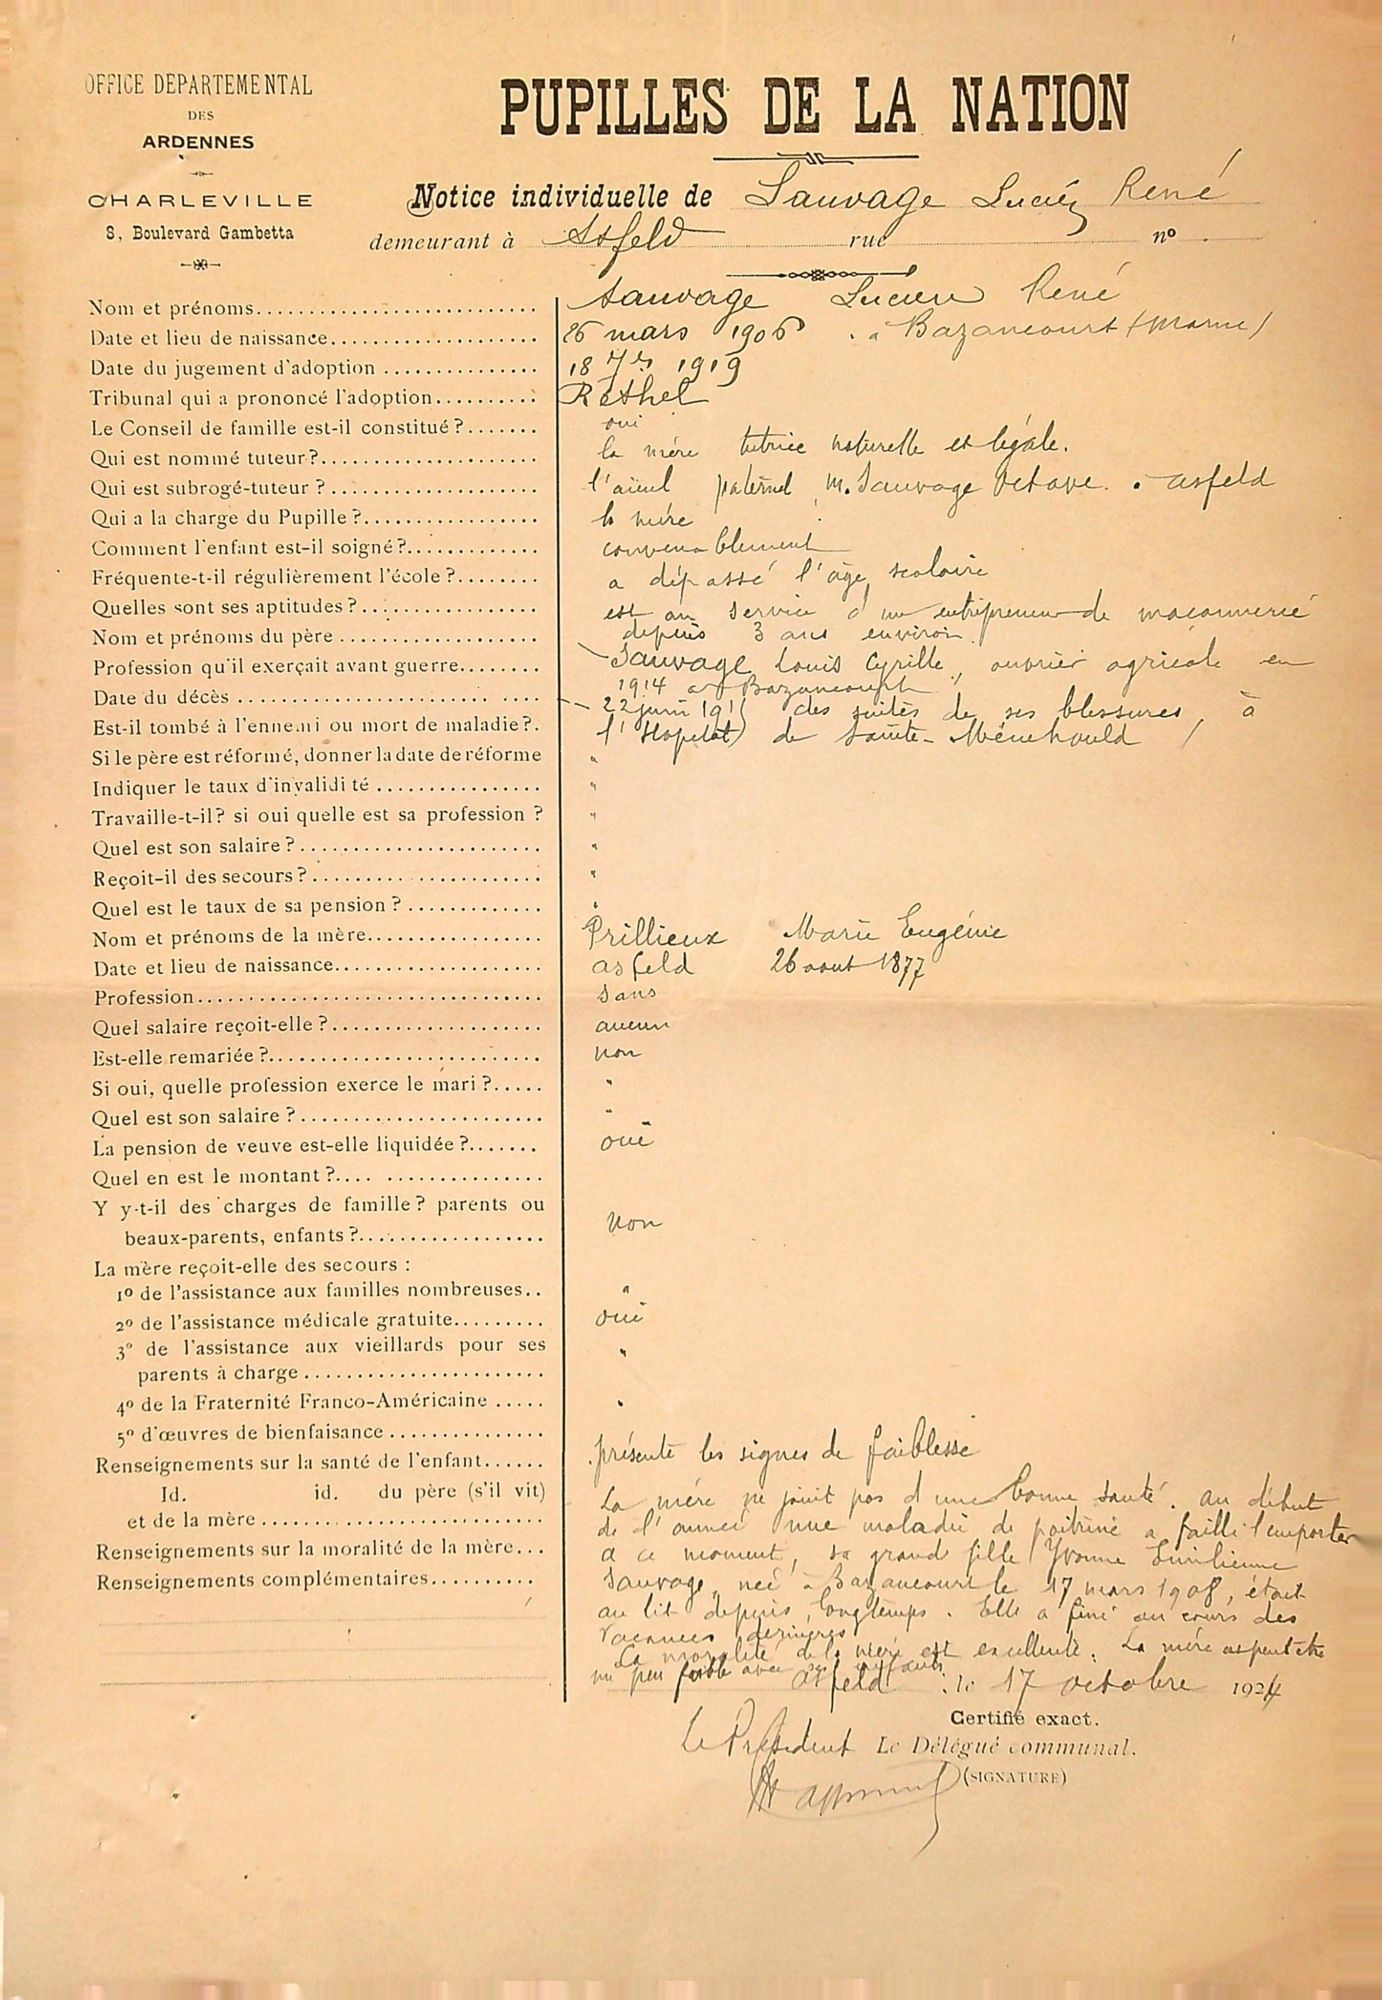 OFFICE DÉPARTEMENTAL
DES
ARDENNES
CHARLEVILLE
8, Boulevard Gambetta
PUPILLES DE LA NATION
Notice individuelle de Sauvage Lucien René
demeurant à Asfeld rue nº
Nom et prénoms Sauvage Lucien René
Date et lieu de naissance 26 mars 1906 à Bazancourt (Marne)
Date du jugement d'adoption 18 7bre 1919
Tribunal qui a prononcé l'adoption Rethel
Le Conseil de famille est-il constitué? oui
Qui est nommé tuteur? la mère tutrice naturelle et légale.
Qui est subrogé-tuteur? l'aïeul paternel, M. Sauvage Octave. Asfeld
Qui a la charge du Pupille? la mère
Comment l'enfant est-il soigné? convenablement
Fréquente-t-il régulièrement l'école? a dépassé l'âge scolaire
Quelles sont ses aptitudes? est au service d'un entrepreneur de maçonnerie
Nom et prénoms du père depuis 3 ans environ.
Profession qu'il exerçait avant guerre Sauvage Louis Cyrille, ouvrier agricole en
Date du décès 1914 à Bazancourt
Est-il tombé à l'ennemi ou mort de maladie? 22 juin 191 des suites de ses blessures, à
l'Hopital de Sainte-Ménehould
Si le père est réformé, donner la date de réforme "
Indiquer le taux d'invalidité "
Travaille-t-il? si oui quelle est sa profession? "
Quel est son salaire? "
Reçoit-il des secours? "
Quel est le taux de sa pension? "
Nom et prénoms de la mère Prillieux Marie Eugénie
Date et lieu de naissance asfeld 26 aout 1877
Profession sans
Quel salaire reçoit-elle? aucun
Est-elle remariée? non
Si oui, quelle profession exerce le mari? "
Quel est son salaire? "
La pension de veuve est-elle liquidée? oui
Quel en est le montant?
Y y-t-il des charges de famille? parents ou
beaux-parents, enfants? non
La mère reçoit-elle des secours :
1º de l'assistance aux familles nombreuses "
2º de l'assistance médicale gratuite oui
3º de l'assistance aux vieillards pour ses
parents à charge "
4º de la Fraternité Franco-Américaine "
5º d'œuvres de bienfaisance
Renseignements sur la santé de l'enfant présente les signes de faiblesse
Id. id. du père (s'il vit)
et de la mère
Renseignements sur la moralité de la mère
Renseignements complémentaires
La mère ne jouit pas d'une bonne santé. au début
de l'année une maladie de poitrine a failli l'emporter
a ce moment, sa grand fille Yvonne Emilienne
Sauvage, née à Bazancourt le 17 mars 1908, était
au lit depuis longtemps. Elle a fini au cours des
vacances dernières
La moralité de la mère est excellente. La mère est peut être
un peu faible avec ses enfants
asfeld, le 17 octobre 1924
Certifié exact.
Le Président Le Délégué communal.
(SIGNATURE)